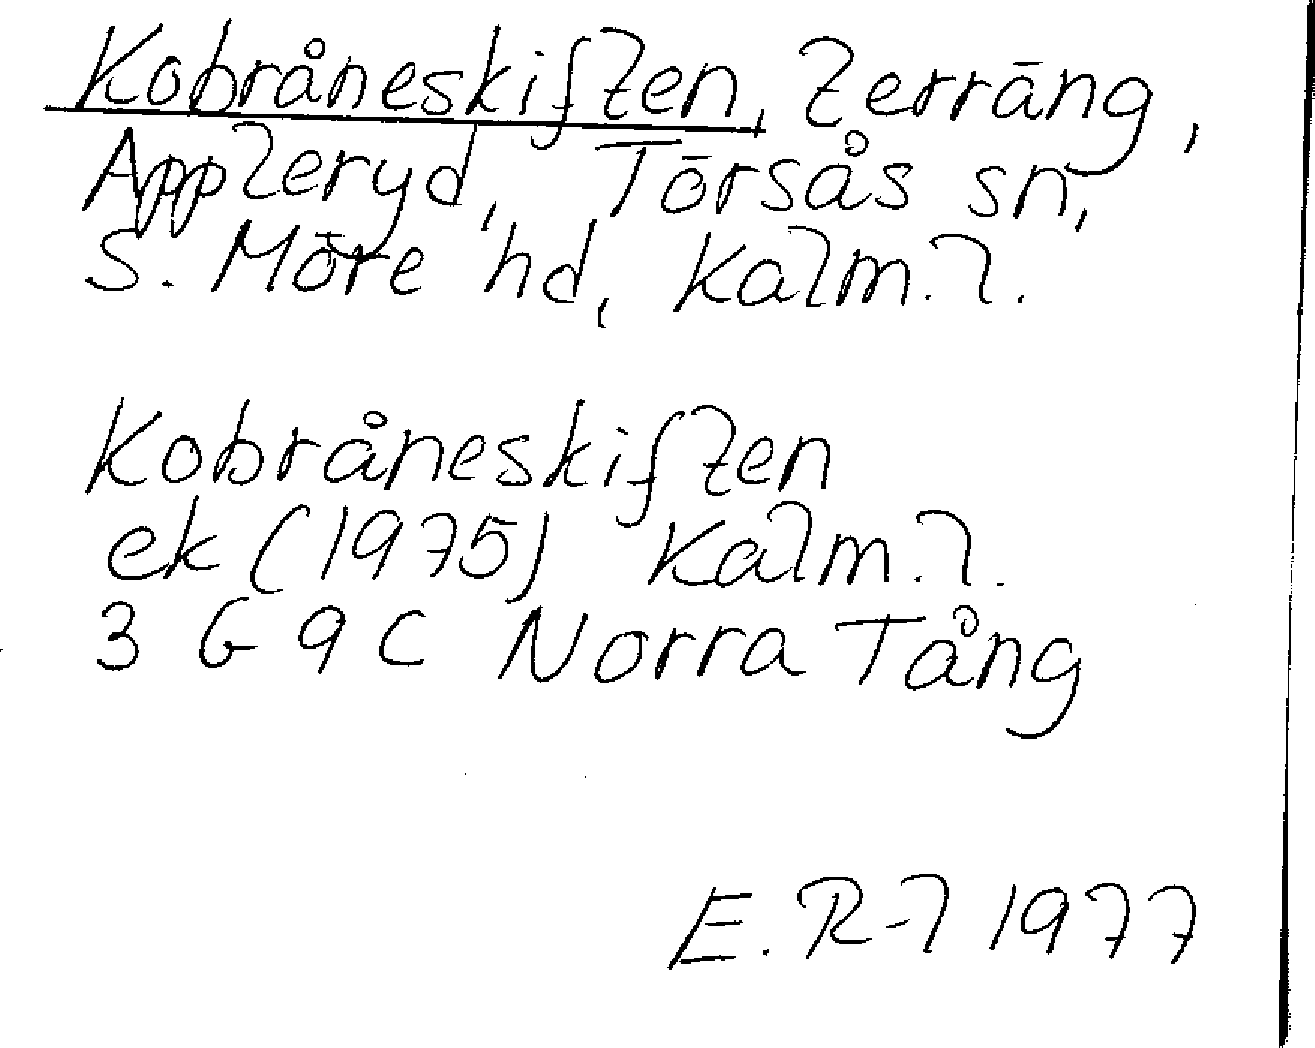 Kobråneskiften, terräng,
Appleryd, Torsås sn,
S. Möre hd, Kalm. l.
Kobråneskiften
ek (1975) Kalm. l.
3 G 9 c Norra Tång
E. R-l 1977